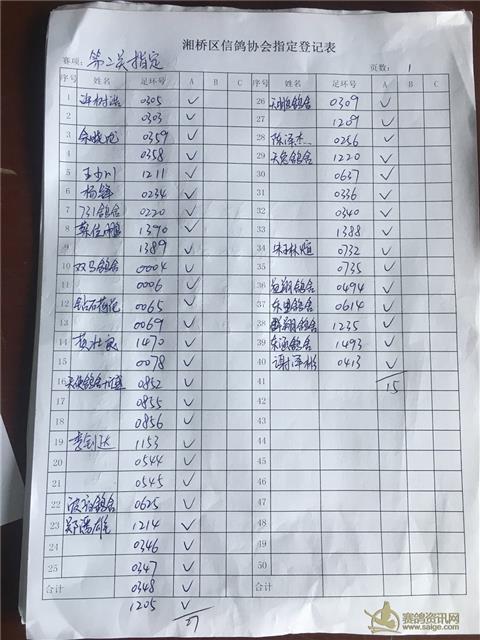 湘桥区信鸽协会指定登记表
赛项: 第二关指定 页数: 1
序号 姓名 足环号 A B C 序号 姓名 足环号 A B C
1 0305 ✓ 26 0309 ✓
2 0303 ✓ 27 1209 ✓
3 余晓鸿 0359 ✓ 28 陈泽杰 0256 ✓
4 0358 ✓ 29 天兔鸽舍 1220 ✓
5 王少川 1211 ✓ 30 0637 ✓
6 杨锋 0234 ✓ 31 0336 ✓
7 731鸽舍 0220 ✓ 32 0340 ✓
8 1390 ✓ 33 1388 ✓
9 1389 ✓ 34 朱林烜 0732 ✓
10 双马鸽舍 0004 ✓ 35 0735 ✓
11 0006 ✓ 36 翔鸽舍 0494 ✓
12 0065 ✓ 37 鸽舍 0614 ✓
13 0069 ✓ 38 群翔鸽舍 1235 ✓
14 黄壮良 1470 ✓ 39 鸽舍 1493 ✓
15 0078 ✓ 40 谢泽彬 0413 ✓
16 0852 ✓ 41 15
17 0855 ✓ 42
18 0856 ✓ 43
19 1153 ✓ 44
20 0544 ✓ 45
21 0545 ✓ 46
22 鸽舍 0625 ✓ 47
23 郑鸿雄 1214 ✓ 48
24 0346 ✓ 49
25 0347 ✓ 50
合计 0348 ✓ 合计
1205 ✓
27
赛鸽资讯网
www.saige.com